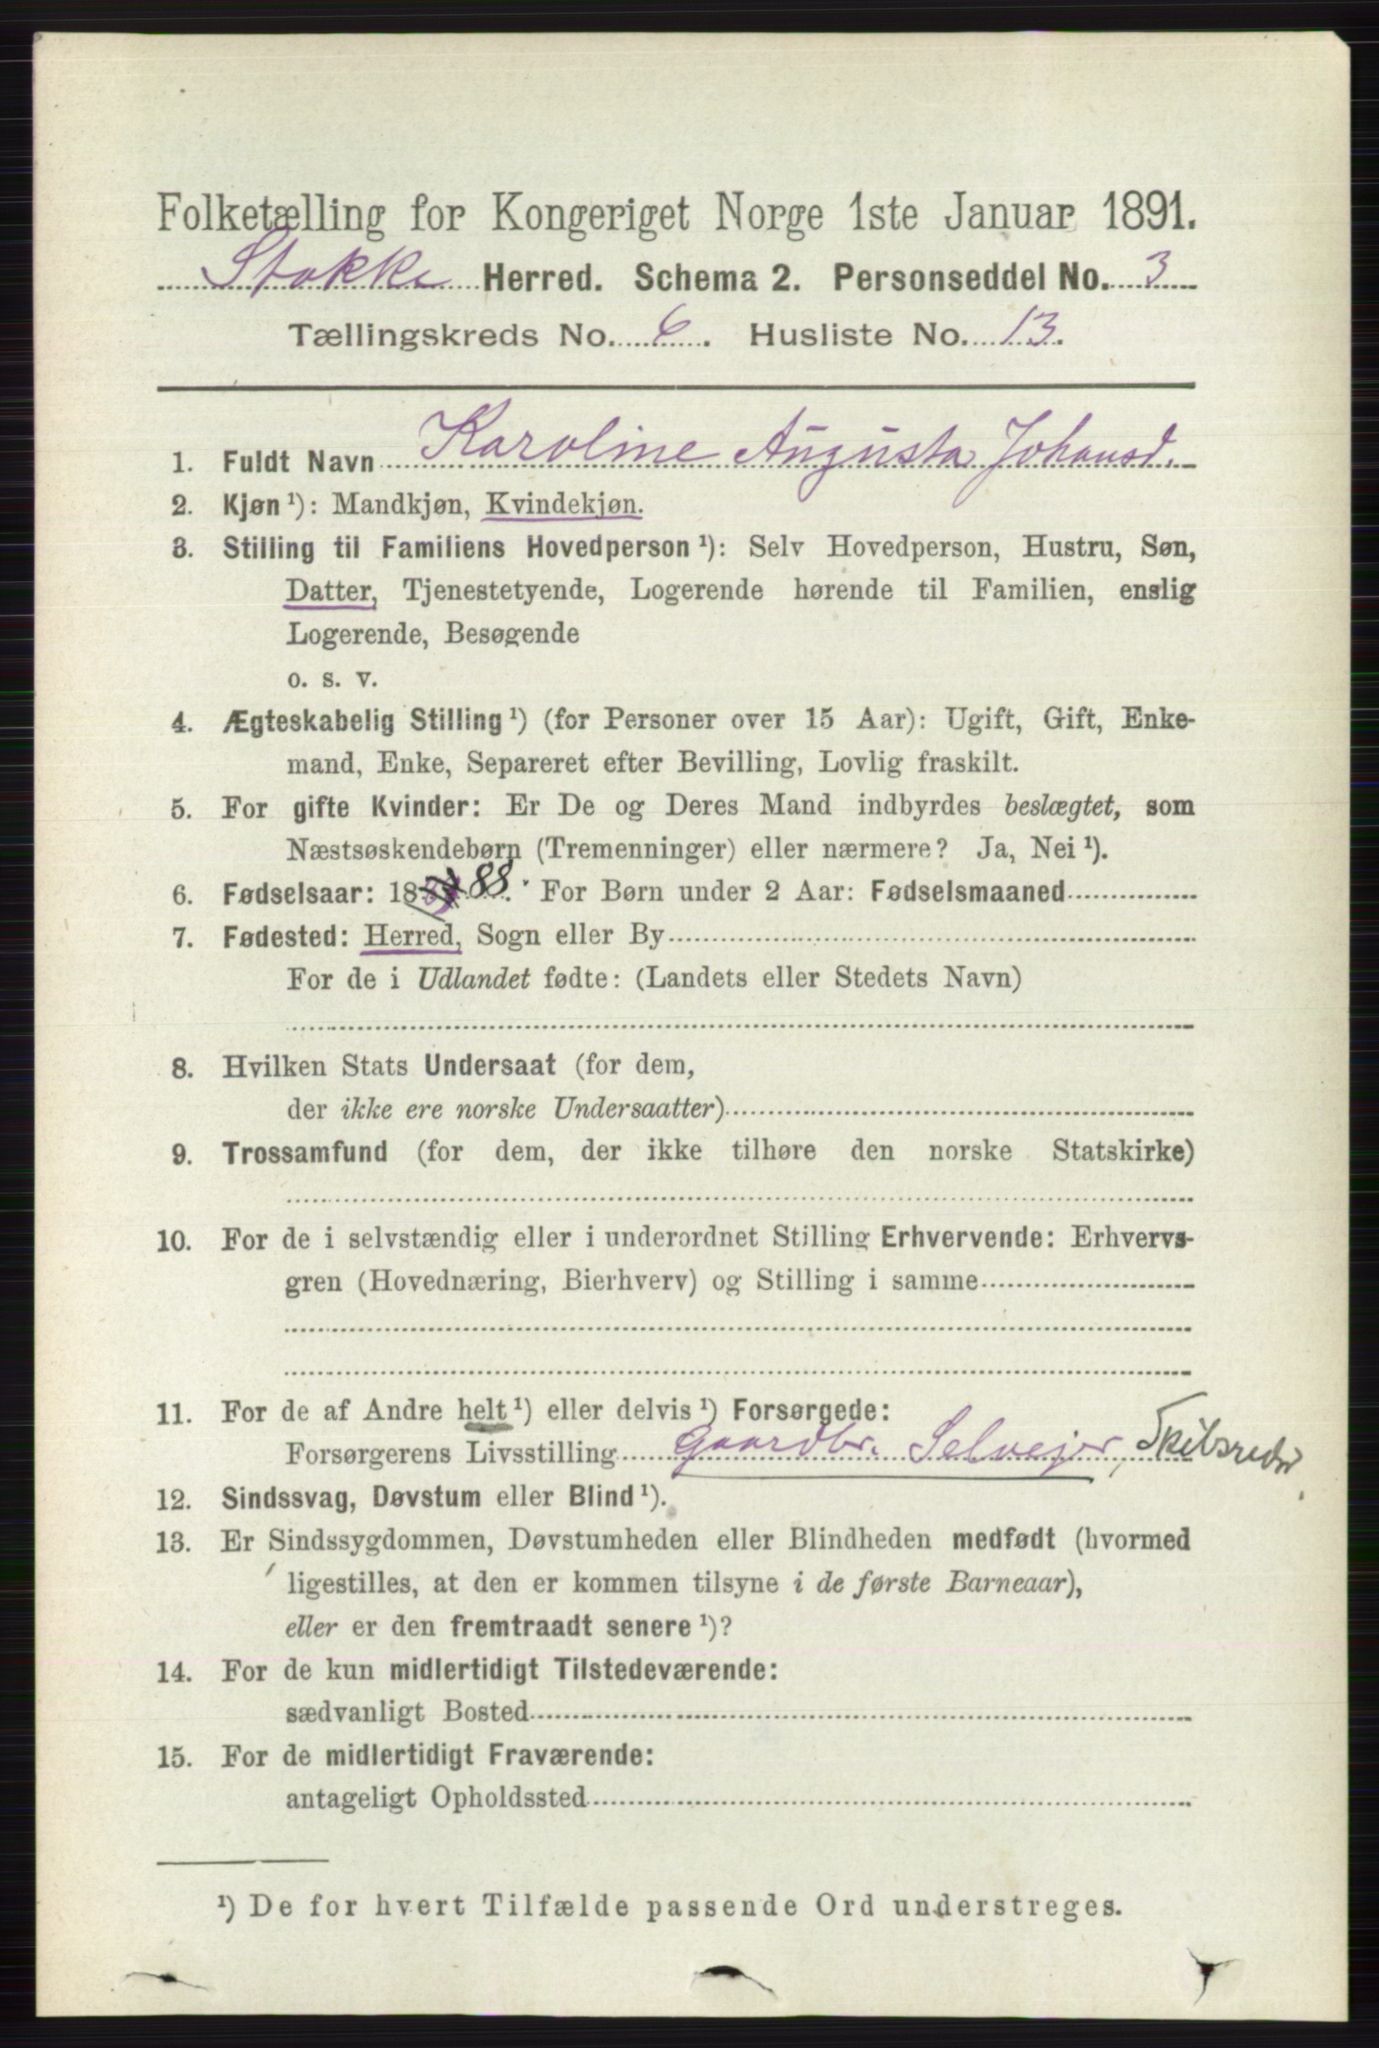 Folketælling for Kongeriget Norge 1ste Januar 1891.
Stokke Herred. Schema 2. Personseddel No. 3
Tællingskreds No. 6. Husliste No. 13.
1. Fuldt Navn Karoline Augusta Johansd.
2. Kjøn ¹): Mandkjøn, Kvindekjøn.
3. Stilling til Familiens Hovedperson ¹): Selv Hovedperson, Hustru, Søn,
Datter, Tjenestetyende, Logerende hørende til Familien, enslig
Logerende, Besøgende
o. s. v.
4. Ægteskabelig Stilling ¹) (for Personer over 15 Aar): Ugift, Gift, Enke-
mand, Enke, Separeret efter Bevilling, Lovlig fraskilt.
5. For gifte Kvinder: Er De og Deres Mand indbyrdes beslægtet, som
Næstsøskendebørn (Tremenninger) eller nærmere? Ja, Nei ¹).
6. Fødselsaar: 18 88. For Børn under 2 Aar: Fødselsmaaned
7. Fødested: Herred, Sogn eller By
For de i Udlandet fødte: (Landets eller Stedets Navn)
8. Hvilken Stats Undersaat (for dem,
der ikke ere norske Undersaatter)
9. Trossamfund (for dem, der ikke tilhøre den norske Statskirke)
10. For de i selvstændig eller i underordnet Stilling Erhvervende: Erhvervs-
gren (Hovednæring, Bierhverv) og Stilling i samme
11. For de af Andre helt ¹) eller delvis ¹) Forsørgede:
Forsørgerens Livsstilling Gaardbr. Selvejer, Skibsreder
12. Sindssvag, Døvstum eller Blind ¹).
13. Er Sindssygdommen, Døvstumheden eller Blindheden medfødt (hvormed
ligestilles, at den er kommen tilsyne i de første Barneaar),
eller er den fremtraadt senere ¹)?
14. For de kun midlertidigt Tilstedeværende:
sædvanligt Bosted
15. For de midlertidigt Fraværende:
antageligt Opholdssted
¹) De for hvert Tilfælde passende Ord understreges.